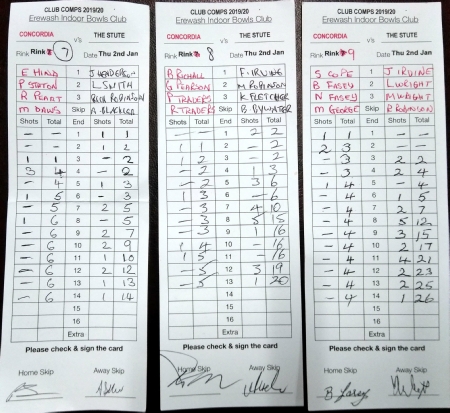 CLUB COMPS 2019/20
Erewash Indoor Bowls Club
CONCORDIA v's THE STUTE
Rink Rink 7 Date Thu 2nd Jan
E HIND 1 J HENDERSON
P SEATON 2 L SMITH
R 3 RICH ROBINSON
M DAWS Skip A
Shots Total End Shots Total
— — 1 1 1
— — 2 1 2
1 1 3 — 2
3 4 4 — 2
— 4 5 1 3
1 5 6 — 3
— 5 7 2 5
1 6 8 — 5
— 6 9 2 7
— 6 10 2 9
— 6 11 1 10
— 6 12 2 12
— 6 13 1 13
— 6 14 1 14
15
16
Extra
Please check & sign the card
Home Skip Away Skip
CLUB COMPS 2019/20
Erewash Indoor Bowls Club
CONCORDIA v's THE STUTE
Rink Rink 8 Date Thu 2nd Jan
B 1 F IRVINE
G PEARSON 2 M ROBINSON
P TRADERS 3 K FLETCHER
R TRADERS Skip B BYWATER
Shots Total End Shots Total
— — 1 2 2
1 1 2 — 2
1 2 3 — 2
— 2 4 1 3
— 2 5 3 6
1 3 6 — 6
— 3 7 4 10
— 3 8 5 15
— 3 9 1 16
1 4 10 — 16
1 5 11 — 16
— 5 12 3 19
— 5 13 1 20
14
15
16
Extra
Please check & sign the card
Home Skip Away Skip
CLUB COMPS 2019/20
Erewash Indoor Bowls Club
CONCORDIA v's THE STUTE
Rink Rink 9 Date Thu 2nd Jan
S COPE 1 J IRVINE
B FASEY 2 L WEIGHT
N FASEY 3 M WRIGHT
M GEORGE Skip R ROBINSON
Shots Total End Shots Total
1 1 1 — —
2 3 2 — —
— 3 3 2 2
— 3 4 2 4
1 4 5 — 4
— 4 6 1 5
— 4 7 2 7
— 4 8 5 12
— 4 9 3 15
— 4 10 2 17
— 4 11 4 21
— 4 12 2 23
— 4 13 2 25
— 4 14 1 26
15
16
Extra
Please check & sign the card
Home Skip Away Skip
B Fasey